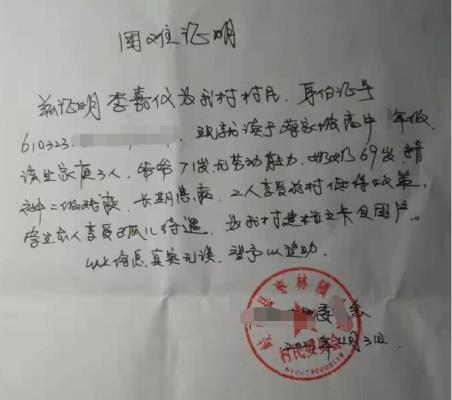 困难证明
兹证明李嘉仪为我村村民,身份证号
610323. 现就读于蔡家坡高中 年级,
该生家有3人,爷爷71岁无劳动能力,奶奶69岁,精
神二级残疾,长期患病,二人享受农村低保政策,
学生本人享受孤儿待遇,为我村建档立卡贫困户。
以上信息真实无误,望予以资助。
县枣林镇
委 会
村民委员会
年4月3日.